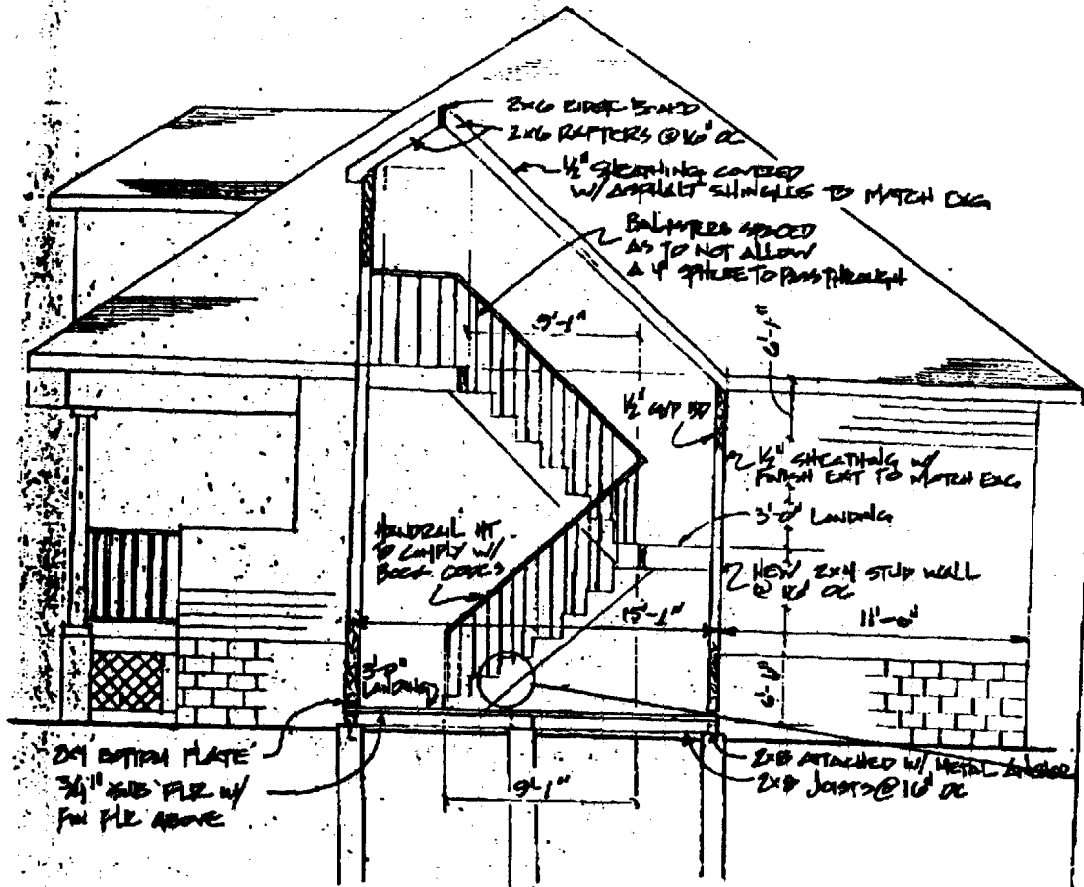 2x6 RIDGE BOARD
2x6 RAFTERS @ 16" OC
1/2" SHEATHING COVERED
W/ ASPHALT SHINGLES TO MATCH EXG
BALUSTERS SPACED
AS TO NOT ALLOW
A 4" SPHERE TO PASS THROUGH
6'-1"
1/2" GYP BD
1/2" SHEATHING W/
FINISH EXT TO MATCH EXG
3'-0" LANDING
HANDRAIL HT
TO COMPLY W/
CODES
NEW 2x4 STUD WALL
@ 16" OC
15'-1"
11'-0"
3'-0"
LANDING
2x4 BOTTOM PLATE
3/4" SUB FLR W/
FIN FLR ABOVE
9'-1"
2x8 ATTACHED W/ METAL
2x8 JOISTS @ 16" OC